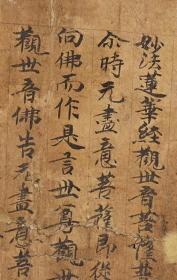 妙法蓮華經觀世音菩薩普
尒時无盡意菩薩即從
向佛而作是言世尊觀世
觀世音佛告无盡意菩